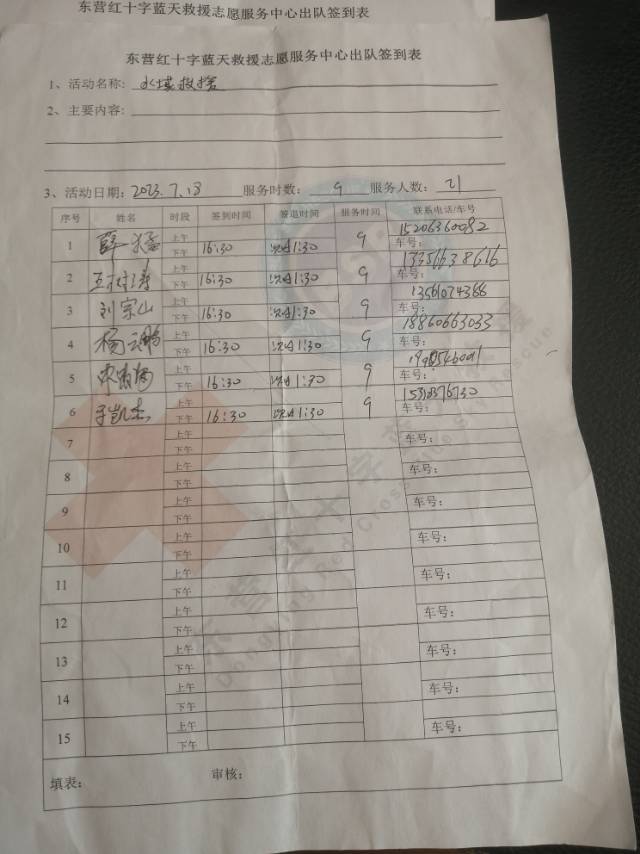 东营红十字蓝天救援志愿服务中心出队签到表
东营红十字蓝天救援志愿服务中心出队签到表
1、活动名称: 水域救援
2、主要内容:
3、活动日期: 2023.7.18 服务时数: 9 服务人数: 21
序号 姓名 时段 签到时间 签退时间 服务时间 联系电话/车号
1 薛猛 上午 15206360082
下午 16:30 次日1:30 9 车号:
2 上午 13356638616
下午 16:30 次日1:30 9 车号:
3 刘宗山 上午 13561074366
下午 16:30 次日1:30 9 车号:
4 杨云鹏 上午 18860663033
下午 16:30 次日1:30 9 车号:
5 上午
下午 16:30 次日1:30 9 车号:
6 于凯杰 上午
下午 16:30 次日1:30 9 车号:
7 上午
下午 车号:
8 上午
下午 车号:
9 上午
下午 车号:
10 上午
下午 车号:
11 上午
下午 车号:
12 上午
下午 车号:
13 上午
下午 车号:
14 上午
下午 车号:
15 上午
下午 车号:
填表: 审核:
东营红十字蓝天救援
Dongying Red Cross Blue Sky Rescue